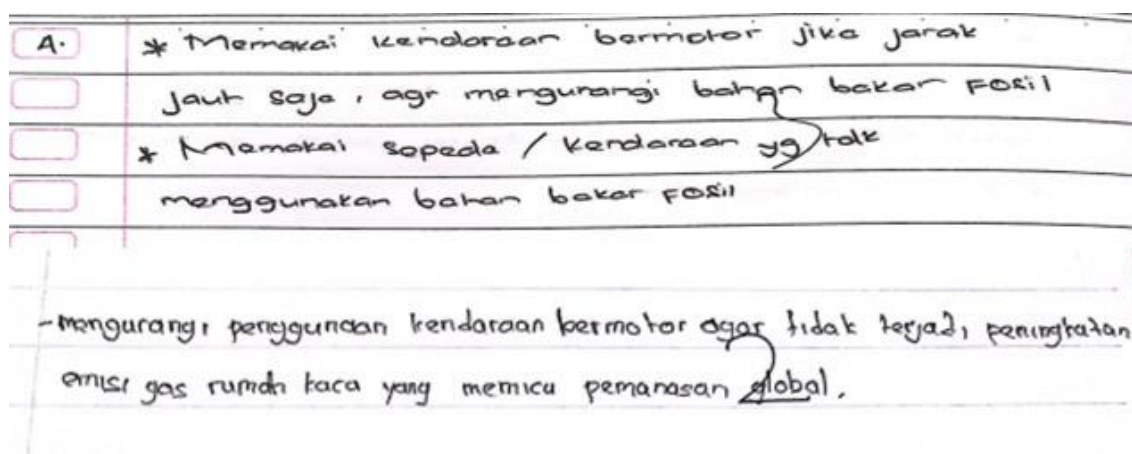 A. * Memakai kendaraan bermotor jika jarak
jauh saja, agr mengurangi bahan bakar fosil
* Memakai sepeda / kendaraan yg tdk
menggunakan bahan bakar fosil
- mengurangi penggunaan kendaraan bermotor agar tidak terjadi peningkatan
emisi gas rumah kaca yang memicu pemanasan global.